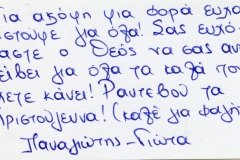 Για ακόμη μια φορά ευχα
ιστούμε για όλα! Σας ευχό-
μαστε ο Θεός να σας αντ
είβει για όλα τα καλά του
χετε κάνει! Ραντεβού τα
Χριστούγεννα! (καλέ μα φαλή
Παναγιώτης-Γιώτα